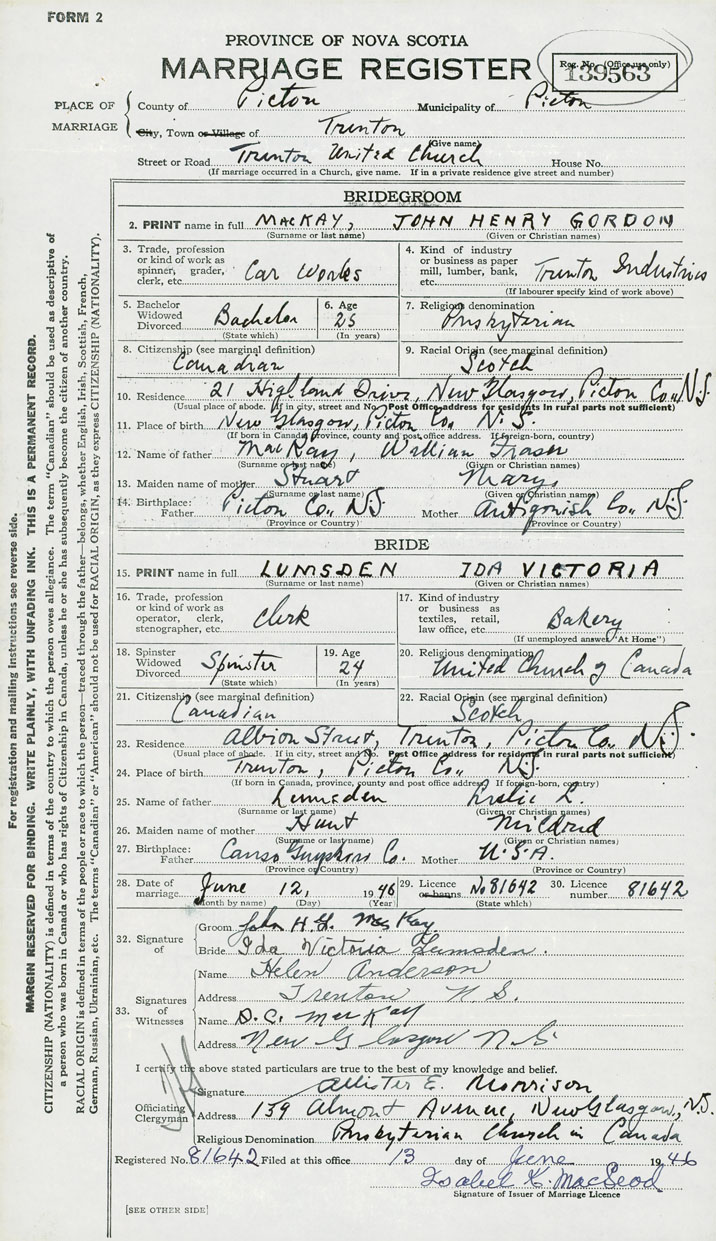 FORM 2
PROVINCE OF NOVA SCOTIA
MARRIAGE REGISTER
Reg. No. (Office use only)
139563
PLACE OF MARRIAGE
County of Pictou Municipality of Pictou
City, Town or Village of Trenton
(Give name)
Street or Road Trenton United Church House No.
(If marriage occurred in a Church, give name. If in a private residence give street and number)
BRIDEGROOM
2. PRINT name in full MACKAY, JOHN HENRY GORDON
(Surname or last name) (Given or Christian names)
3. Trade, profession or kind of work as spinner, grader, clerk, etc. Car Works
4. Kind of industry or business as paper mill, lumber, bank, etc. Trenton Industries
(If labourer specify kind of work above)
5. Bachelor Widowed Divorced Bachelor
(State which)
6. Age 25
(In years)
7. Religious denomination
Presbyterian
8. Citizenship (see marginal definition)
Canadian
9. Racial Origin (see marginal definition)
Scotch
10. Residence 21 Highland Drive, New Glasgow, Pictou Co., N.S.
(Usual place of abode. If in city, street and No. Post Office address for residents in rural parts not sufficient)
11. Place of birth New Glasgow, Pictou Co., N.S.
(If born in Canada, province, county and post office address. If foreign-born, country)
12. Name of father MacKay, William Fraser
(Surname or last name) (Given or Christian names)
13. Maiden name of mother Stuart Mary
(Surname or last name) (Given or Christian names)
14. Birthplace: Father Pictou Co., N.S. Mother Antigonish Co., N.S.
(Province or Country) (Province or Country)
BRIDE
15. PRINT name in full LUMSDEN IDA VICTORIA
(Surname or last name) (Given or Christian names)
16. Trade, profession or kind of work as operator, clerk, stenographer, etc. Clerk
17. Kind of industry or business as textiles, retail, law office, etc. Bakery
(If unemployed answer "At Home")
18. Spinster Widowed Divorced Spinster
(State which)
19. Age 24
(In years)
20. Religious denomination
United Church of Canada
21. Citizenship (see marginal definition)
Canadian
22. Racial Origin (see marginal definition)
Scotch
23. Residence Albion Street, Trenton, Pictou Co. N.S.
(Usual place of abode. If in city, street and No. Post Office address for residents in rural parts not sufficient)
24. Place of birth Trenton, Pictou Co., N.S.
(If born in Canada, province, county and post office address. If foreign-born, country)
25. Name of father Lumsden Leslie L.
(Surname or last name) (Given or Christian names)
26. Maiden name of mother Hunt Mildred
(Surname or last name) (Given or Christian names)
27. Birthplace: Father Canso Guysboro Co. Mother U.S.A.
(Province or Country) (Province or Country)
28. Date of marriage June 12, 1946
(Month by name) (Day) (Year)
29. Licence or banns No 81642
(State which)
30. Licence number 81642
32. Signature of
Groom John H. G. MacKay
Bride Ida Victoria Lumsden.
33. Signatures of Witnesses
Name Helen Anderson
Address Trenton N S.
Name D. C. MacKay
Address New Glasgow N.S
I certify the above stated particulars are true to the best of my knowledge and belief.
Officiating Clergyman
Signature Allister E. Morrison
Address 139 Almont Avenue, New Glasgow, N.S.
Religious Denomination Presbyterian Church in Canada
Registered No. 81642 Filed at this office 13 day of June 1946
Isabel K. MacLeod
Signature of Issuer of Marriage Licence
[SEE OTHER SIDE]
For registration and mailing instructions see reverse side.
MARGIN RESERVED FOR BINDING. WRITE PLAINLY, WITH UNFADING INK. THIS IS A PERMANENT RECORD.
CITIZENSHIP (NATIONALITY) is defined in terms of the country to which the person owes allegiance. The term "Canadian" should be used as descriptive of
a person who was born in Canada or who has rights of Citizenship in Canada, unless he or she has subsequently become the citizen of another country.
RACIAL ORIGIN is defined in terms of the people or race to which the person—traced through the father—belongs, whether English, Irish, Scottish, French,
German, Russian, Ukrainian, etc. The terms "Canadian" or "American" should not be used for RACIAL ORIGIN, as they express CITIZENSHIP (NATIONALITY).